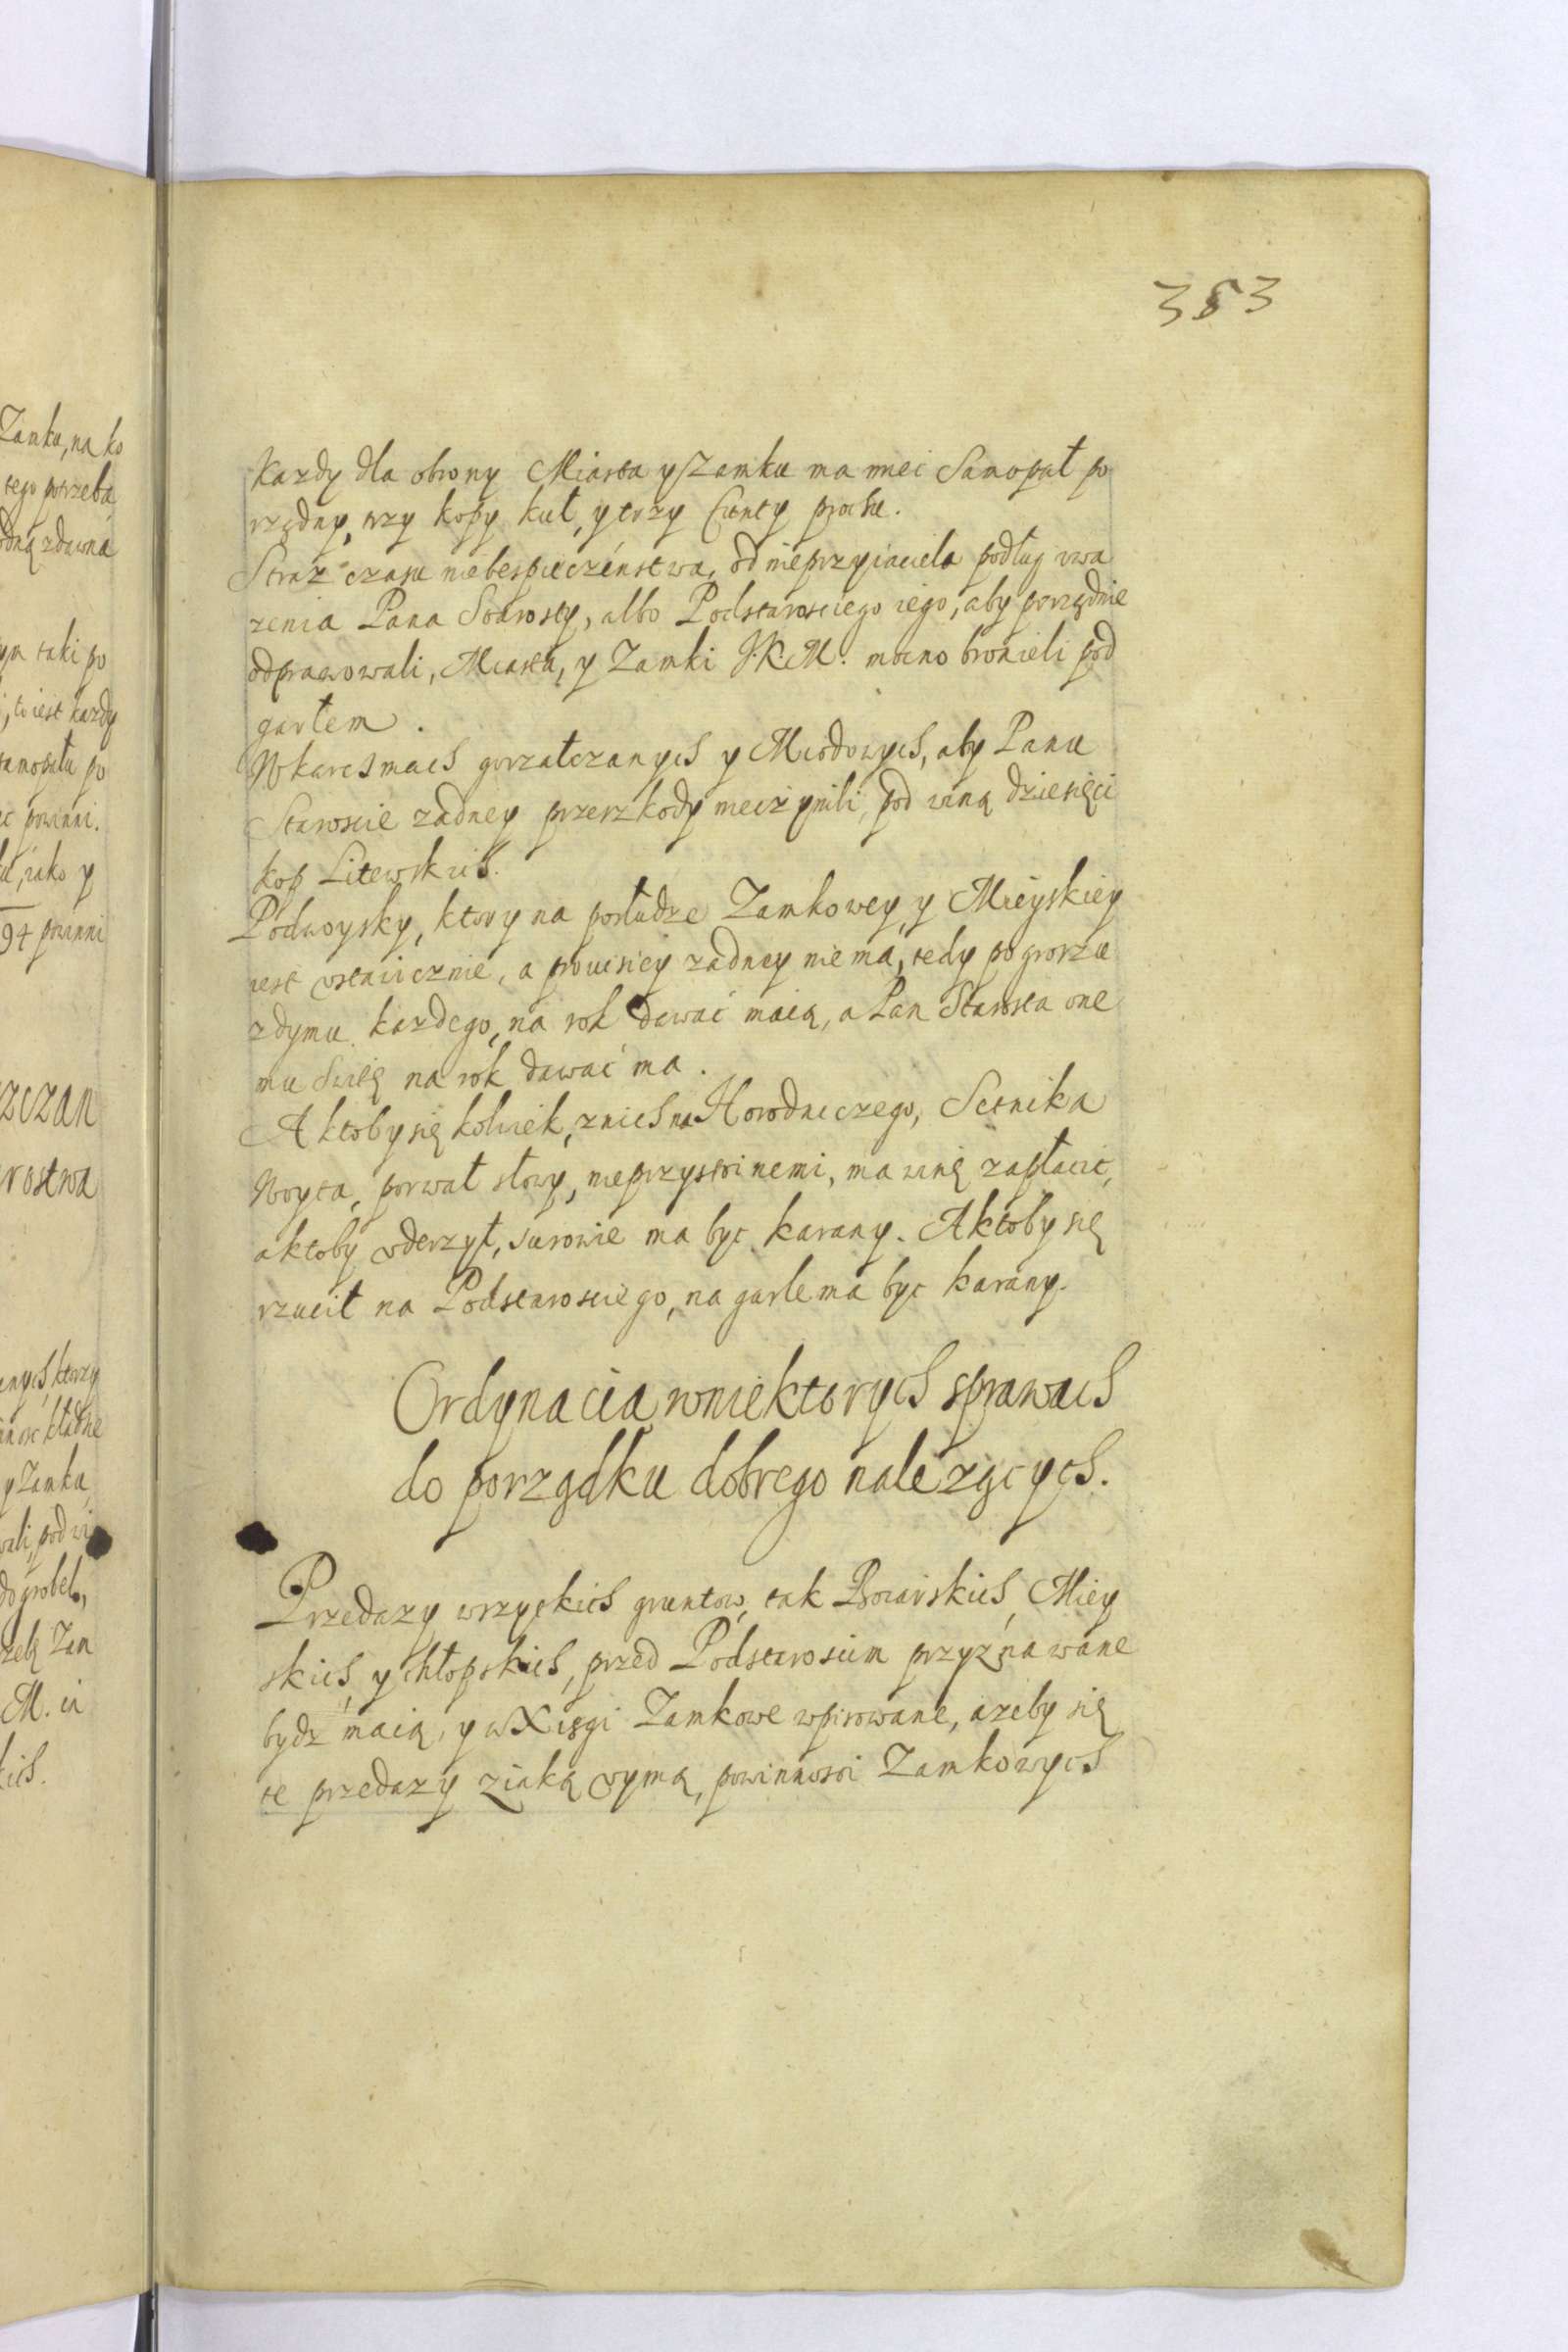 383
Kazdy dla obrony Miasta y Zamku ma mieć Samopał po
rządny, trzy kopy kul, y trzy funty prochu.
Straz czasu niebespieczeństwa, od nieprzyiaciela podług uwa
zenia Pana Starosty, albo Podstarosciego iego, aby porządnie
odprawowali, Miasta, y Zamki J.K.M. mocno bronieli pod
garłem.
W karczmach gorzałczanych y Miodowych, aby Panu
Staroscie zadney przeszkody nieczynili, pod winą dziesięci
kop Litewskich.
Podwoysky, ktory na posłudze Zamkowey, y Mieyskiey
iest ustawicznie, a prowisiey zadney nie ma, tedy po groszu
z dymu kazdego, na rok dawać maią, a Pan Starosta one
mu Suknię na rok dawać ma.
A ktoby się kolwiek, z nich na Horodniczego, Setnika
Woyta, porwał słowy, nieprzystoinemi, ma winę zapłacic,
a ktoby uderzył, surowie ma byc karany. A ktoby się
rzucił na Podstarosciego, na garle ma byc karany.
Ordynacia w niektorych sprawach
do porządku dobrego nalezących.
Przedazy wszyskich gruntow, tak Boiarskich, Miey
skich, y chłopskich, przed Podstaroscim przyznawane
bydz maią, y w Xięgi Zamkowe wpisowane, azeby się
te przedazy z iaką uymą, powinnosci Zamkowych
Zamku, na ko
tego potrzeba
zdawna
taki po
to iest kazdy
samopału po
powinni.
iako y
94 powinni
szczan
rostwa
ktorzy
y Zamku
wali, pod wi
do grobel,
Zam
M. in
kich.